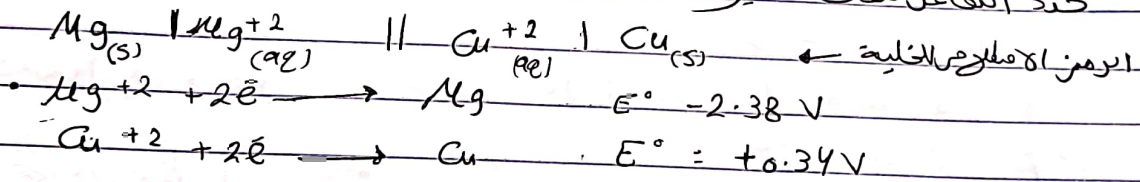 Mg(s) | Mg+2(aq) || Cu+2(aq) | Cu(s) ← الرمز الاصطلاحي للخلية
• Mg+2 + 2ē → Mg E° -2.38 V
Cu+2 + 2ē → Cu . E° = +0.34 V